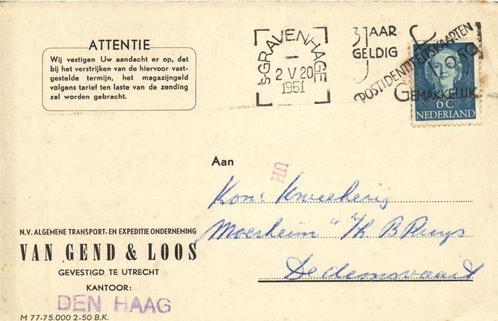 ATTENTIE
Wij vestigen Uw aandacht er op, dat
bij het verstrijken van de hiervoor vast-
gestelde termijn, het magazijngeld
volgens tarief ten laste van de zending
zal worden gebracht.
'S-GRAVENHAGE
2 V 20
1951
3 JAAR
GELDIG
POSTIDENTITEITSKAARTEN
f 0.50
GEMAKKELIJK
6C
NEDERLAND
Aan
HU
Kon. Kweekerij
Moerheim v/h B Ruys
Dedemsvaart
N.V. ALGEMENE TRANSPORT- EN EXPEDITIE ONDERNEMING
VAN GEND & LOOS
GEVESTIGD TE UTRECHT
KANTOOR:
DEN HAAG
M 77-75.000 2-50 B.K.